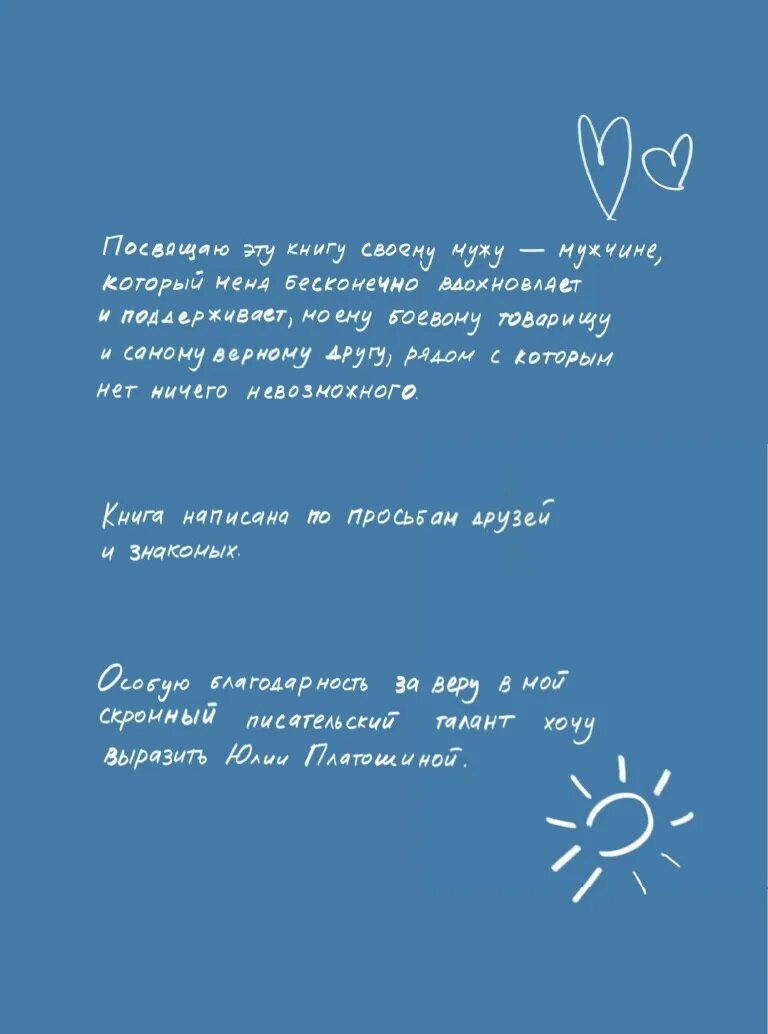 Посвящаю эту книгу своему мужу — мужчине,
который меня бесконечно вдохновляет
и поддерживает, моему боевому товарищу
и самому верному другу, рядом с которым
нет ничего невозможного.
Книга написана по просьбам друзей
и знакомых.
Особую благодарность за веру в мой
скромный писательский талант хочу
выразить Юлии Платошиной.